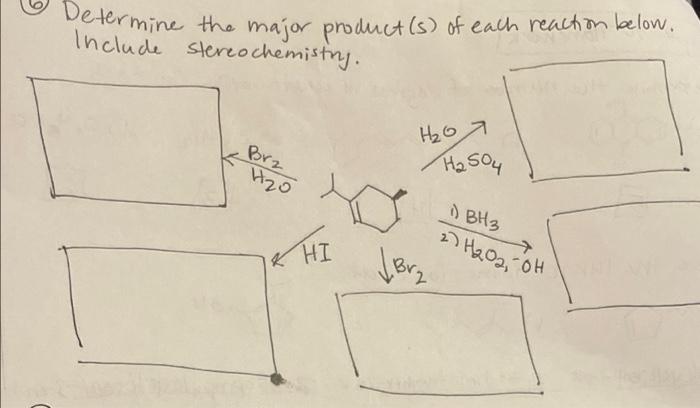 6 Determine the major product(s) of each reaction below.
Include stereochemistry.
Br2
H2O
H2O
H2SO4
1) BH3
2) H2O2, -OH
HI
Br2